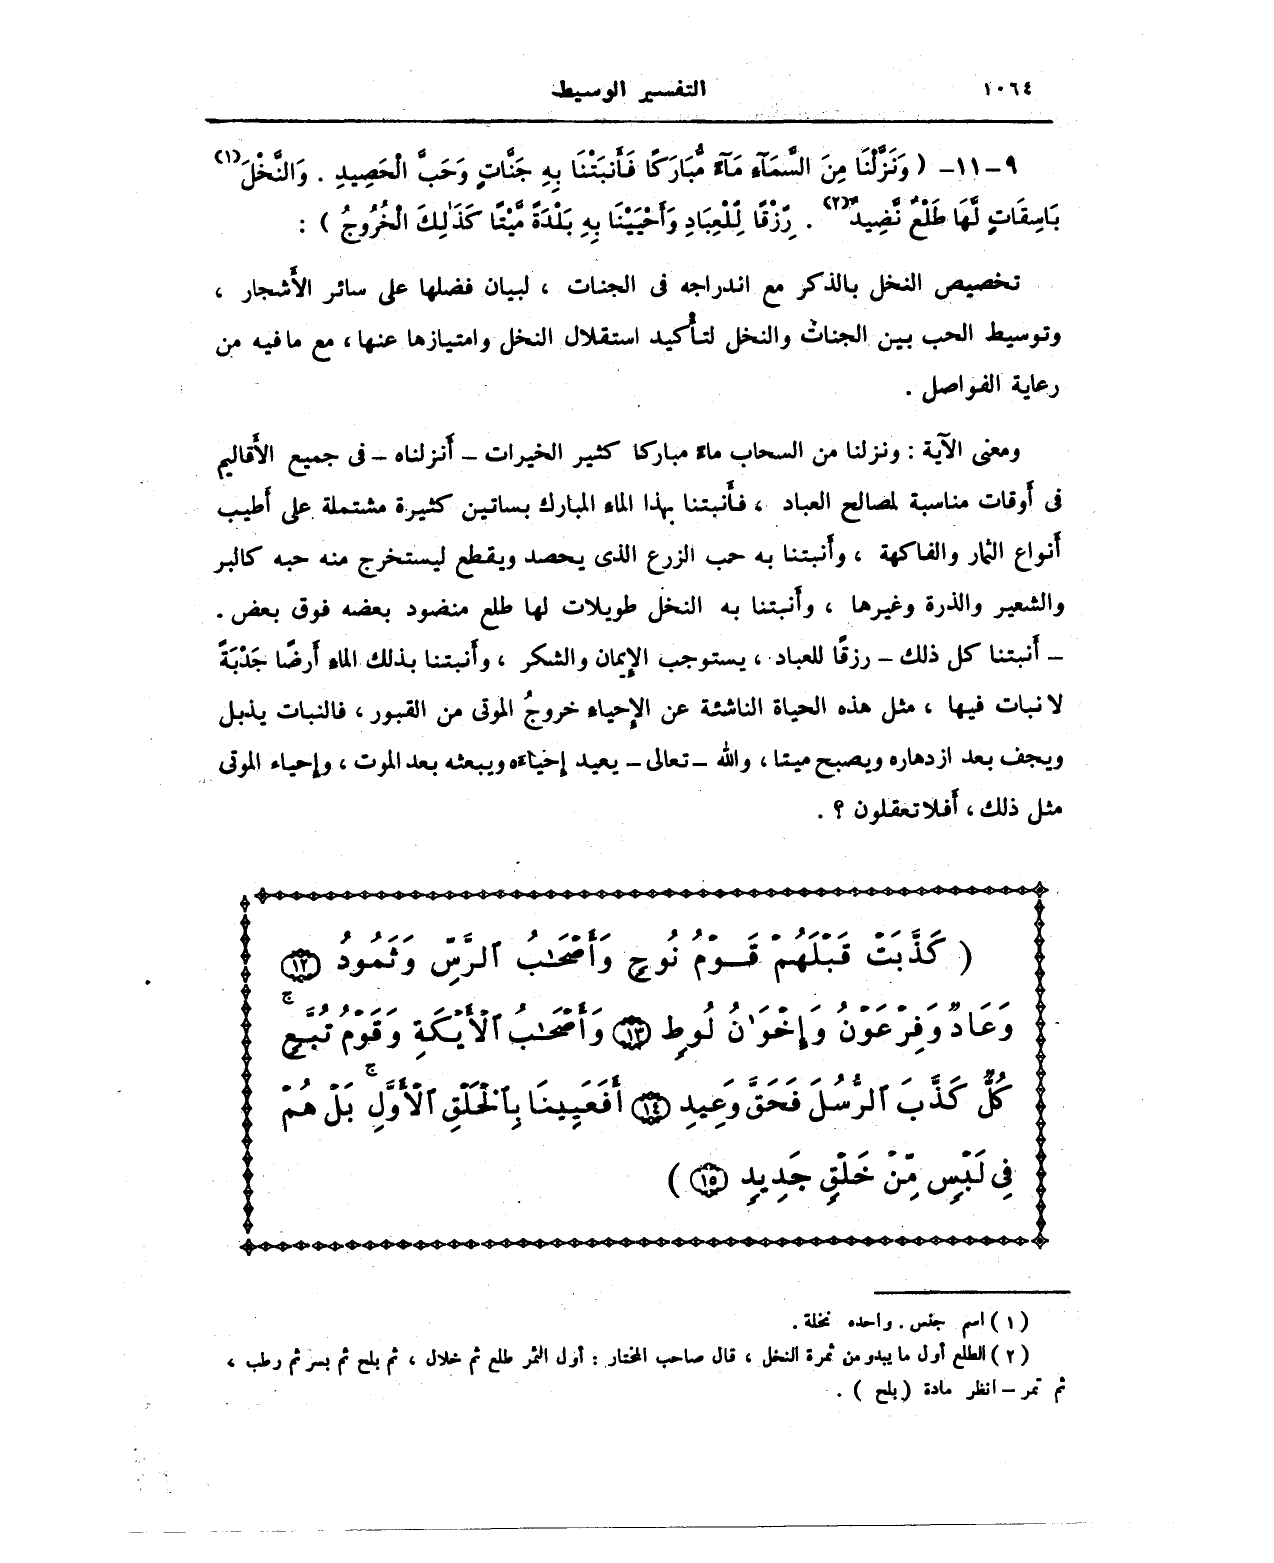 ١٠٦٤ التفسير الوسيط
٩-١١- ( وَنَزَّلْنَا مِنَ السَّمَآءِ مَآءً مُّبَارَكًا فَأَنبَتْنَا بِهِ جَنَّاتٍ وَحَبَّ الْحَصِيدِ . وَالنَّخْلَ(١)
بَاسِقَاتٍ لَّهَا طَلْعٌ نَّضِيدٌ(٢) . رِّزْقًا لِّلْعِبَادِ وَأَحْيَيْنَا بِهِ بَلْدَةً مَّيْتًا كَذَٰلِكَ الْخُرُوجُ ) :
تخصيص النخل بالذكر مع اندراجه فى الجنات ، لبيان فضلها على سائر الأَشجار ،
وتوسيط الحب بين الجنات والنخل لتأْكيد استقلال النخل وامتيازها عنها ، مع ما فيه من
رعاية الفواصل .
ومعنى الآية : ونزلنا من السحاب ماءً مباركا كثير الخيرات – أَنزلناه – فى جميع الأَقاليم
فى أَوقات مناسبة لمصالح العباد ، فأَنبتنا بهذا الماءِ المبارك بساتين كثيرة مشتملة على أَطيب
أَنواع الثمار والفاكهة ، وأَنبتنا به حب الزرع الذى يحصد ويقطع ليستخرج منه حبه كالبر
والشعير والذرة وغيرها ، وأَنبتنا به النخل طويلات لها طلع منضود بعضه فوق بعض .
– أَنبتنا كل ذلك – رزقًا للعباد ، يستوجب الإِيمان والشكر ، وأَنبتنا بذلك الماءِ أَرضًا جَدْبَةً
لا نبات فيها ، مثل هذه الحياة الناشئة عن الإِحياءِ خروجُ الموتى من القبور ، فالنبات يذبل
ويجف بعد ازدهاره ويصبح ميتا ، والله – تعالى – يعيد إِحياءَه ويبعثه بعد الموت ، وإِحياء الموتى
مثل ذلك ، أَفلا تعقلون ؟ .
( كَذَّبَتْ قَبْلَهُمْ قَوْمُ نُوحٍ وَأَصْحَٰبُ ٱلرَّسِّ وَثَمُودُ ١٢
وَعَادٌ وَفِرْعَوْنُ وَإِخْوَٰنُ لُوطٍ ١٣ وَأَصْحَٰبُ ٱلْأَيْكَةِ وَقَوْمُ تُبَّعٍ ۚ
كُلٌّ كَذَّبَ ٱلرُّسُلَ فَحَقَّ وَعِيدِ ١٤ أَفَعَيِينَا بِٱلْخَلْقِ ٱلْأَوَّلِ ۚ بَلْ هُمْ
فِى لَبْسٍ مِّنْ خَلْقٍ جَدِيدٍ ١٥ )
( ١ ) اسم جنس . واحده نخلة .
( ٢ ) الطلع أول ما يبدو من ثمرة النخل ، قال صاحب المختار : أول التمر طلع ثم خلال ، ثم بلح ثم بسر ثم رطب ،
ثم تمر – انظر مادة ( بلح ) .